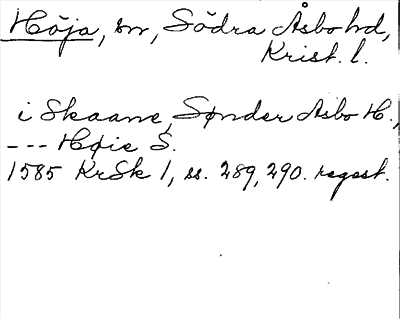 Höja, sn, Södra Åsbo hd,
Krist. l.
i Skaane, Sønder Asbo H.,
--- Høie S.
1585 KrSk 1, ss. 289, 290. regest.